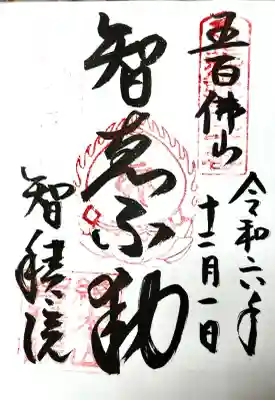 五百佛山
令和六年
十二月一日
智恵不動
智積院